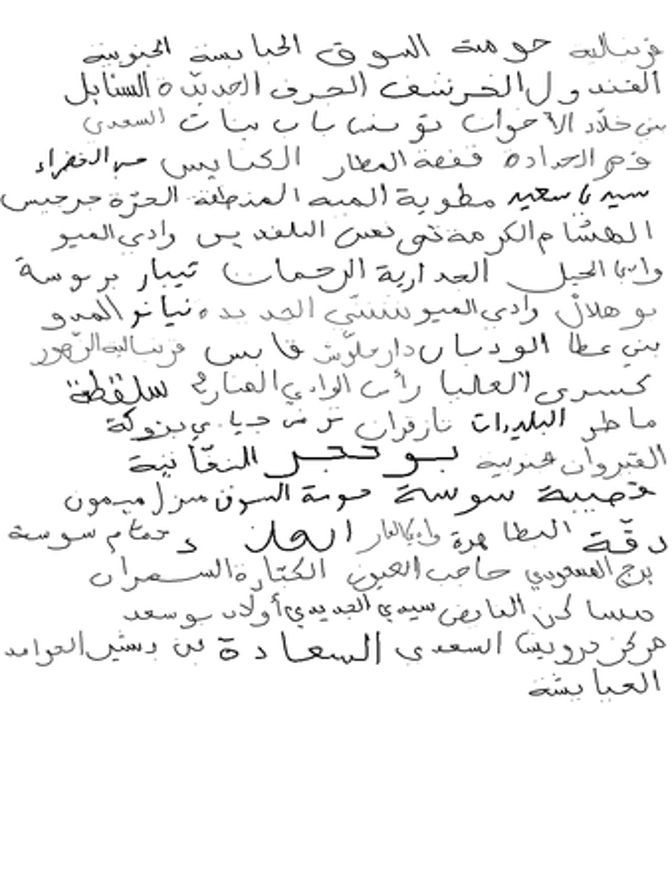 قرنبالية حومة السوق الحبابسة الجنوبية
القندول الخرشف الجرف الحديدة السنابل
بني خلاد الأخوات تونس باب بنات السعدي
وجر الحدادة قفصة العطار الكنايس الخضراء
سيدي سعيد مطوية المية المنطقة الحرة جرجيس
الهشام الكرمة وادي الميو
وادي الجبل الجدارية الرحمات تيبار بربوسة
بوهلال وادي الجديدة نيانو
بني عطا الوديان دار علوش قابس قرنبالية الزهور
كسرى العليا رأس الوادي المنارة سلقطة
ماطر البليدات نازقران بزوكة
القيروان جنوبية بوحجر النقانية
قصيبة سوسة حومة السوق منزل ميمون
دقة البطاهرة حمام سوسة
برج المسعودي حاجب العيون الكتارة السمران
مساكن النايض سيدي الجديدي أولاد بوسعد
مركز درويش السعدي السعادة بن بشير العوامد
العيايشة